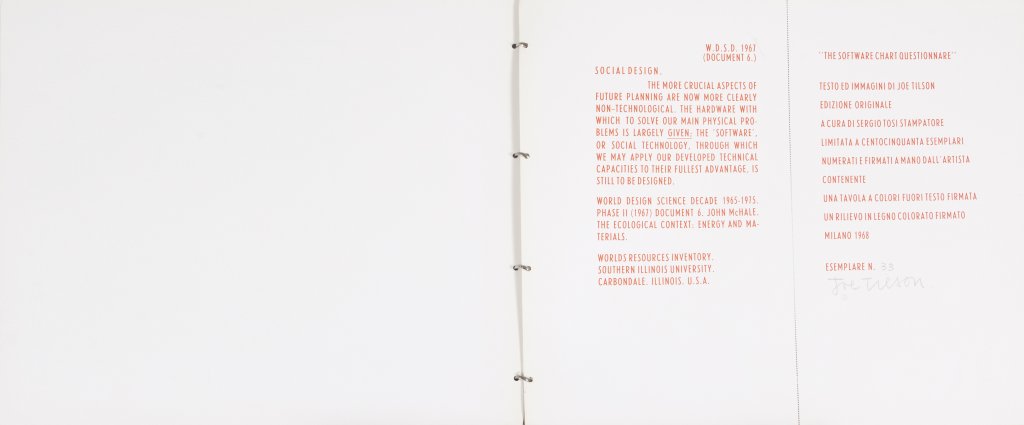 W.D.S.D. 1967
(DOCUMENT 6.)
SOCIAL DESIGN.
THE MORE CRUCIAL ASPECTS OF
FUTURE PLANNING ARE NOW MORE CLEARLY
NON-TECHNOLOGICAL. THE HARDWARE WITH
WHICH TO SOLVE OUR MAIN PHYSICAL PRO-
BLEMS IS LARGELY GIVEN; THE 'SOFTWARE',
OR SOCIAL TECHNOLOGY, THROUGH WHICH
WE MAY APPLY OUR DEVELOPED TECHNICAL
CAPACITIES TO THEIR FULLEST ADVANTAGE, IS
STILL TO BE DESIGNED.
WORLD DESIGN SCIENCE DECADE 1965-1975.
PHASE II (1967) DOCUMENT 6. JOHN McHALE.
THE ECOLOGICAL CONTEXT: ENERGY AND MA-
TERIALS.
WORLDS RESOURCES INVENTORY.
SOUTHERN ILLINOIS UNIVERSITY.
CARBONDALE. ILLINOIS. U.S.A.
"THE SOFTWARE CHART QUESTIONNARE"
TESTO ED IMMAGINI DI JOE TILSON
EDIZIONE ORIGINALE
A CURA DI SERGIO TOSI STAMPATORE
LIMITATA A CENTOCINQUANTA ESEMPLARI
NUMERATI E FIRMATI A MANO DALL'ARTISTA
CONTENENTE
UNA TAVOLA A COLORI FUORI TESTO FIRMATA
UN RILIEVO IN LEGNO COLORATO FIRMATO
MILANO 1968
ESEMPLARE N. 33
Joe Tilson.